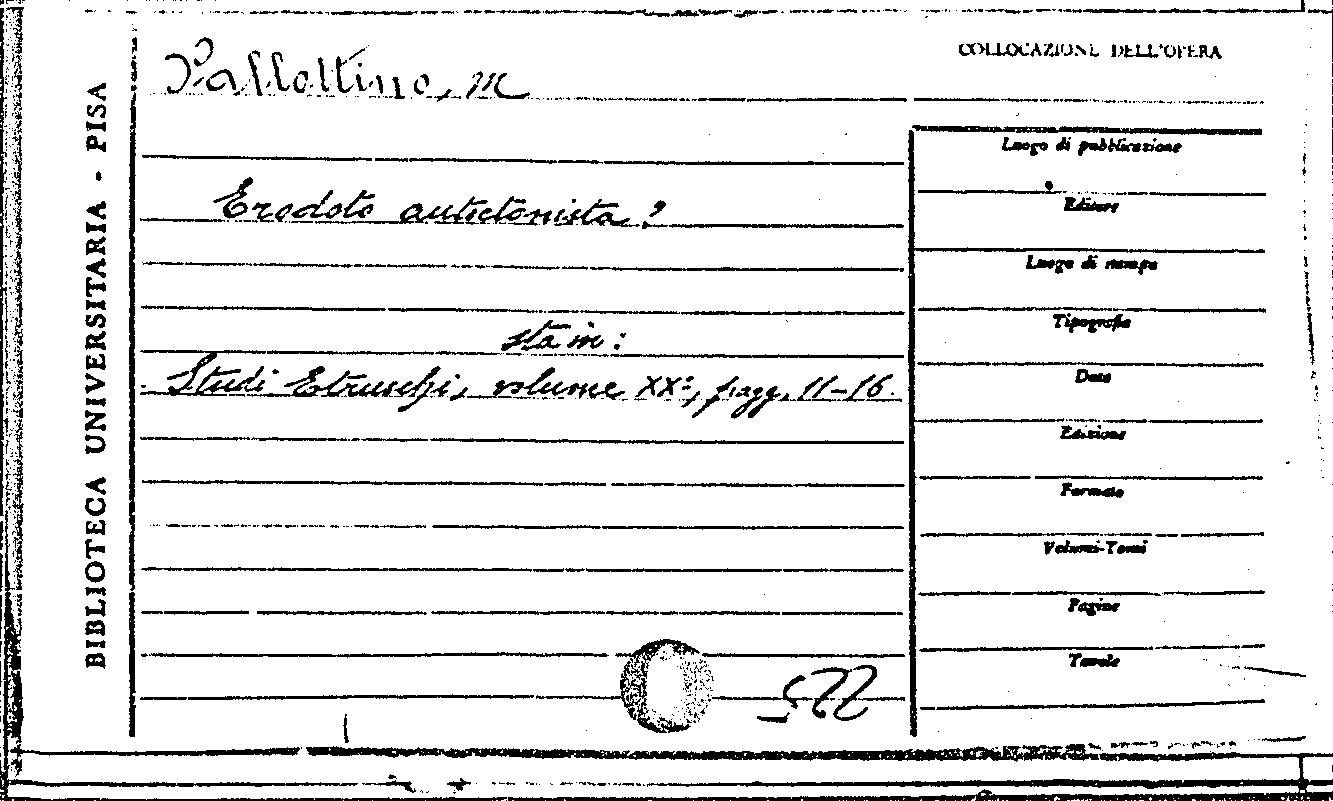 BIBLIOTECA UNIVERSITARIA - PISA
COLLOCAZIONE DELL'OPERA
Pallottino, M
Erodoto autoctonista?
sta in:
Studi Etruschi, volume XXº, pagg. 11-16.
Luogo di pubblicazione
Editore
Luogo di stampa
Tipografia
Data
Edizione
Formato
Volumi-Tomi
Pagine
Tavole